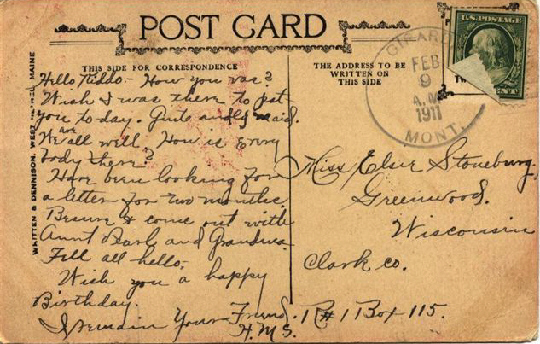 POST CARD
THIS SIDE FOR CORRESPONDENCE
THE ADDRESS TO BE
WRITTEN ON
THIS SIDE
GIRARD
FEB
9
A.M.
1911
MONT.
U.S. POSTAGE
Hello Kiddo- How you vas?
Wish I was there to pet
you to day.
We are all well. How is every
body there?
Have been looking for
a letter for two months.
Besure & come out with
Aunt Pearl and Grandma.
Tell all hello,
Wish you a happy
Birthday.
I remain Your Friend.
H.M.S.
Miss Elsie Stoneburg
Greenwood.
Wisconsin
Clark co.
R # 1 Box 115.
WRITTEN & DENNISON, WEST MAINE